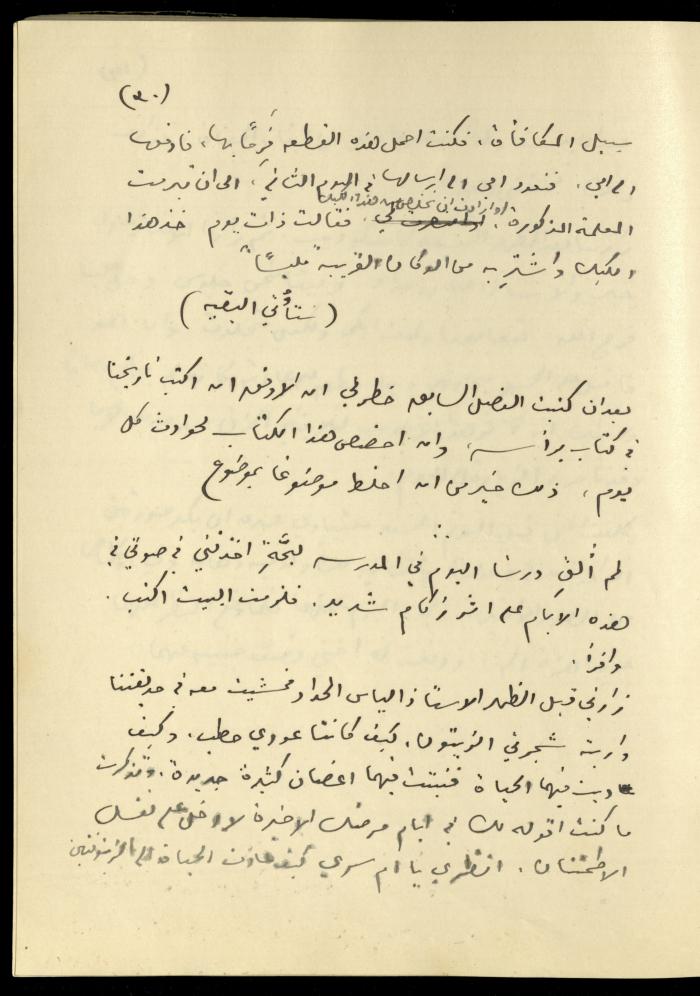 (٣٠)
سبيل المكافأة، فكنت احمل هذه القطعه فَرِحًا بها، فادفعها
الى امي. فتعود امي الى ارسالها في اليوم الثاني، الى ان تبرمت
المعلمة المذكورة، وارادت ان تخلص من هذا الكبك
فقالت ذات يوم خذ هذا
الكبك واشترِ به من الدكان القريبه "ملبسًا"
(ستأتي البقيه)
بعد ان كتبت الفصل السابق خطر لي ان الاوفق ان اكتب تاريخنا
في كتاب برأسه، وان اخصص هذا الكتاب لحوادث كل
يوم، ذلك خير من ان اخلط موضوعًا بموضوع
لم أُلقِ درسًا اليوم في المدرسه لبحَّةٍ اخذتني في صوتي في
هذه الايام على اثر زكام شديد. فلزمت البيت اكتب
واقرأ.
زارني قبل الظهر الاستاذ الياس الحداد فمشيت معه في حديقتنا
واريته شجرتي الزيتون، كيف كانتا عودي حطب، وكيف
دبت فيهما الحياة فنبتت فيهما اغصان كثيرة جديدة. وتذكرت
ما كنت اقوله لك في ايام مرضك الاخيرة لادخل على نفسك
الاطمئنان. انظري يا ام سري كيف عادت الحياة الى الزيتونتين